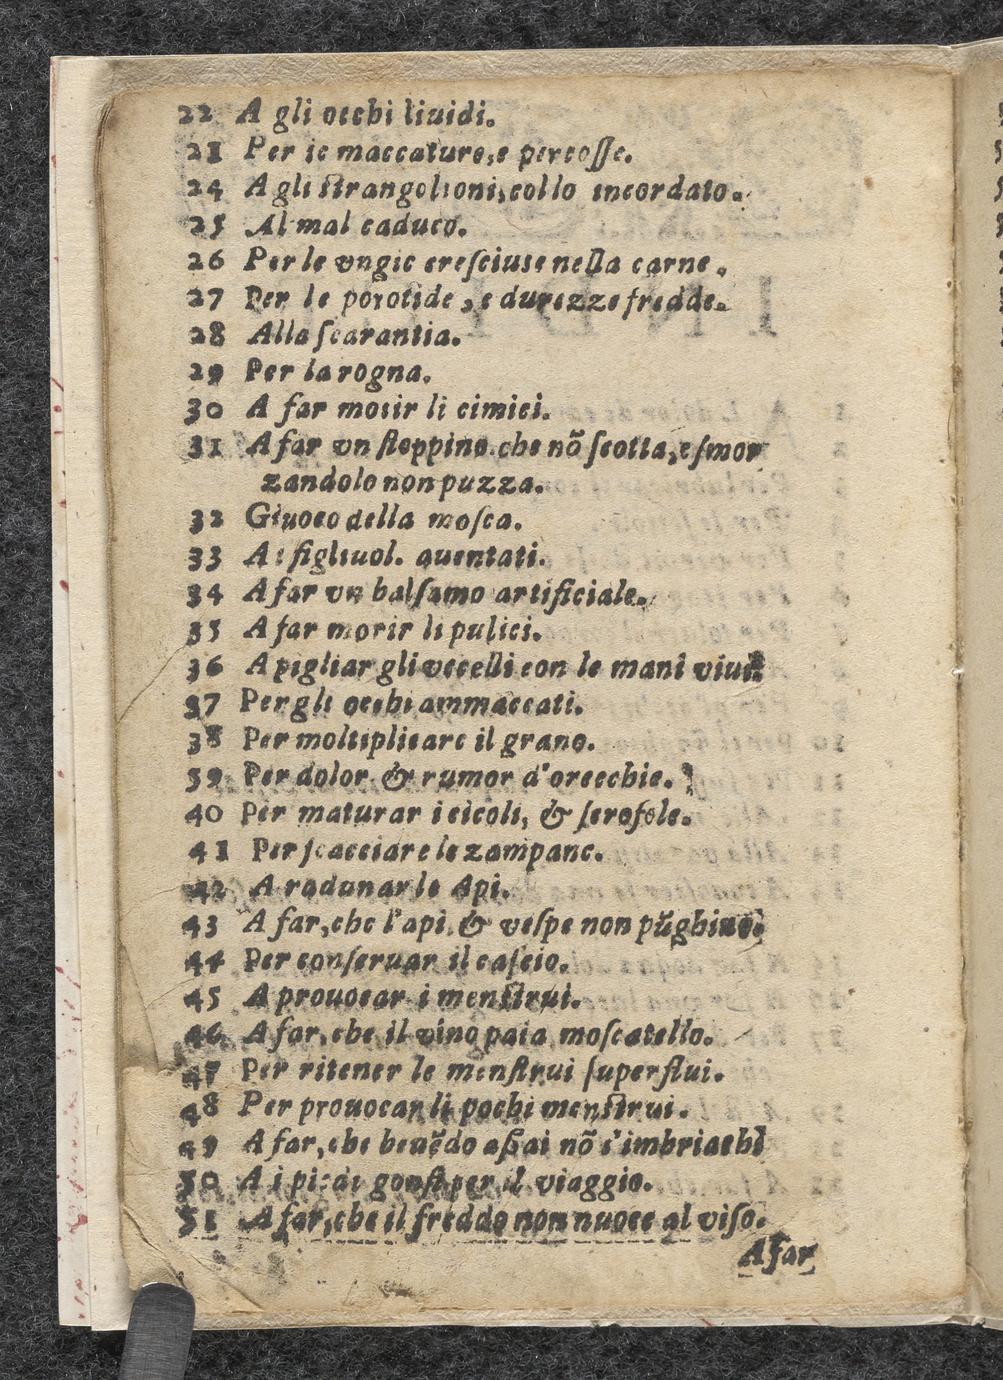 22 A gli occhi liuidi.
23 Per le maccature, e percosse.
24 A gli strangolioni, collo incordato.
25 Al mal caduco.
26 Per le vngie cresciute nella carne.
27 Per le porotide, e durezze fredde.
28 Alla scarantia.
29 Per la rogna.
30 A far morir li cimici.
31 A far vn stoppino che nõ scotta, e smor
zandolo non puzza.
32 Giuoco della mosca.
33 A i figliuol. auentati.
34 A far vn balsamo artificiale.
35 A far morir li pulici.
36 A pigliar gli vccelli con le mani viui
37 Per gli occhi ammaccati.
38 Per moltiplicare il grano.
39 Per dolor & rumor d'orecchie.
40 Per maturar i cicoli, & scrofole.
41 Per scacciare le zampane.
42 A radunar le Api.
43 A far, che l'api & vespe non pũghino.
44 Per conseruar il cascio.
45 A prouocar i menstrui.
46 A far, che il vino paia moscatello.
47 Per ritener le menstrui superflui.
48 Per prouocar li pochi menstrui.
49 A far, che beuẽdo assai nõ s'imbriachi
50 A i piedi gonfi per il viaggio.
51 A far, che il freddo non nuoce al viso.
A far